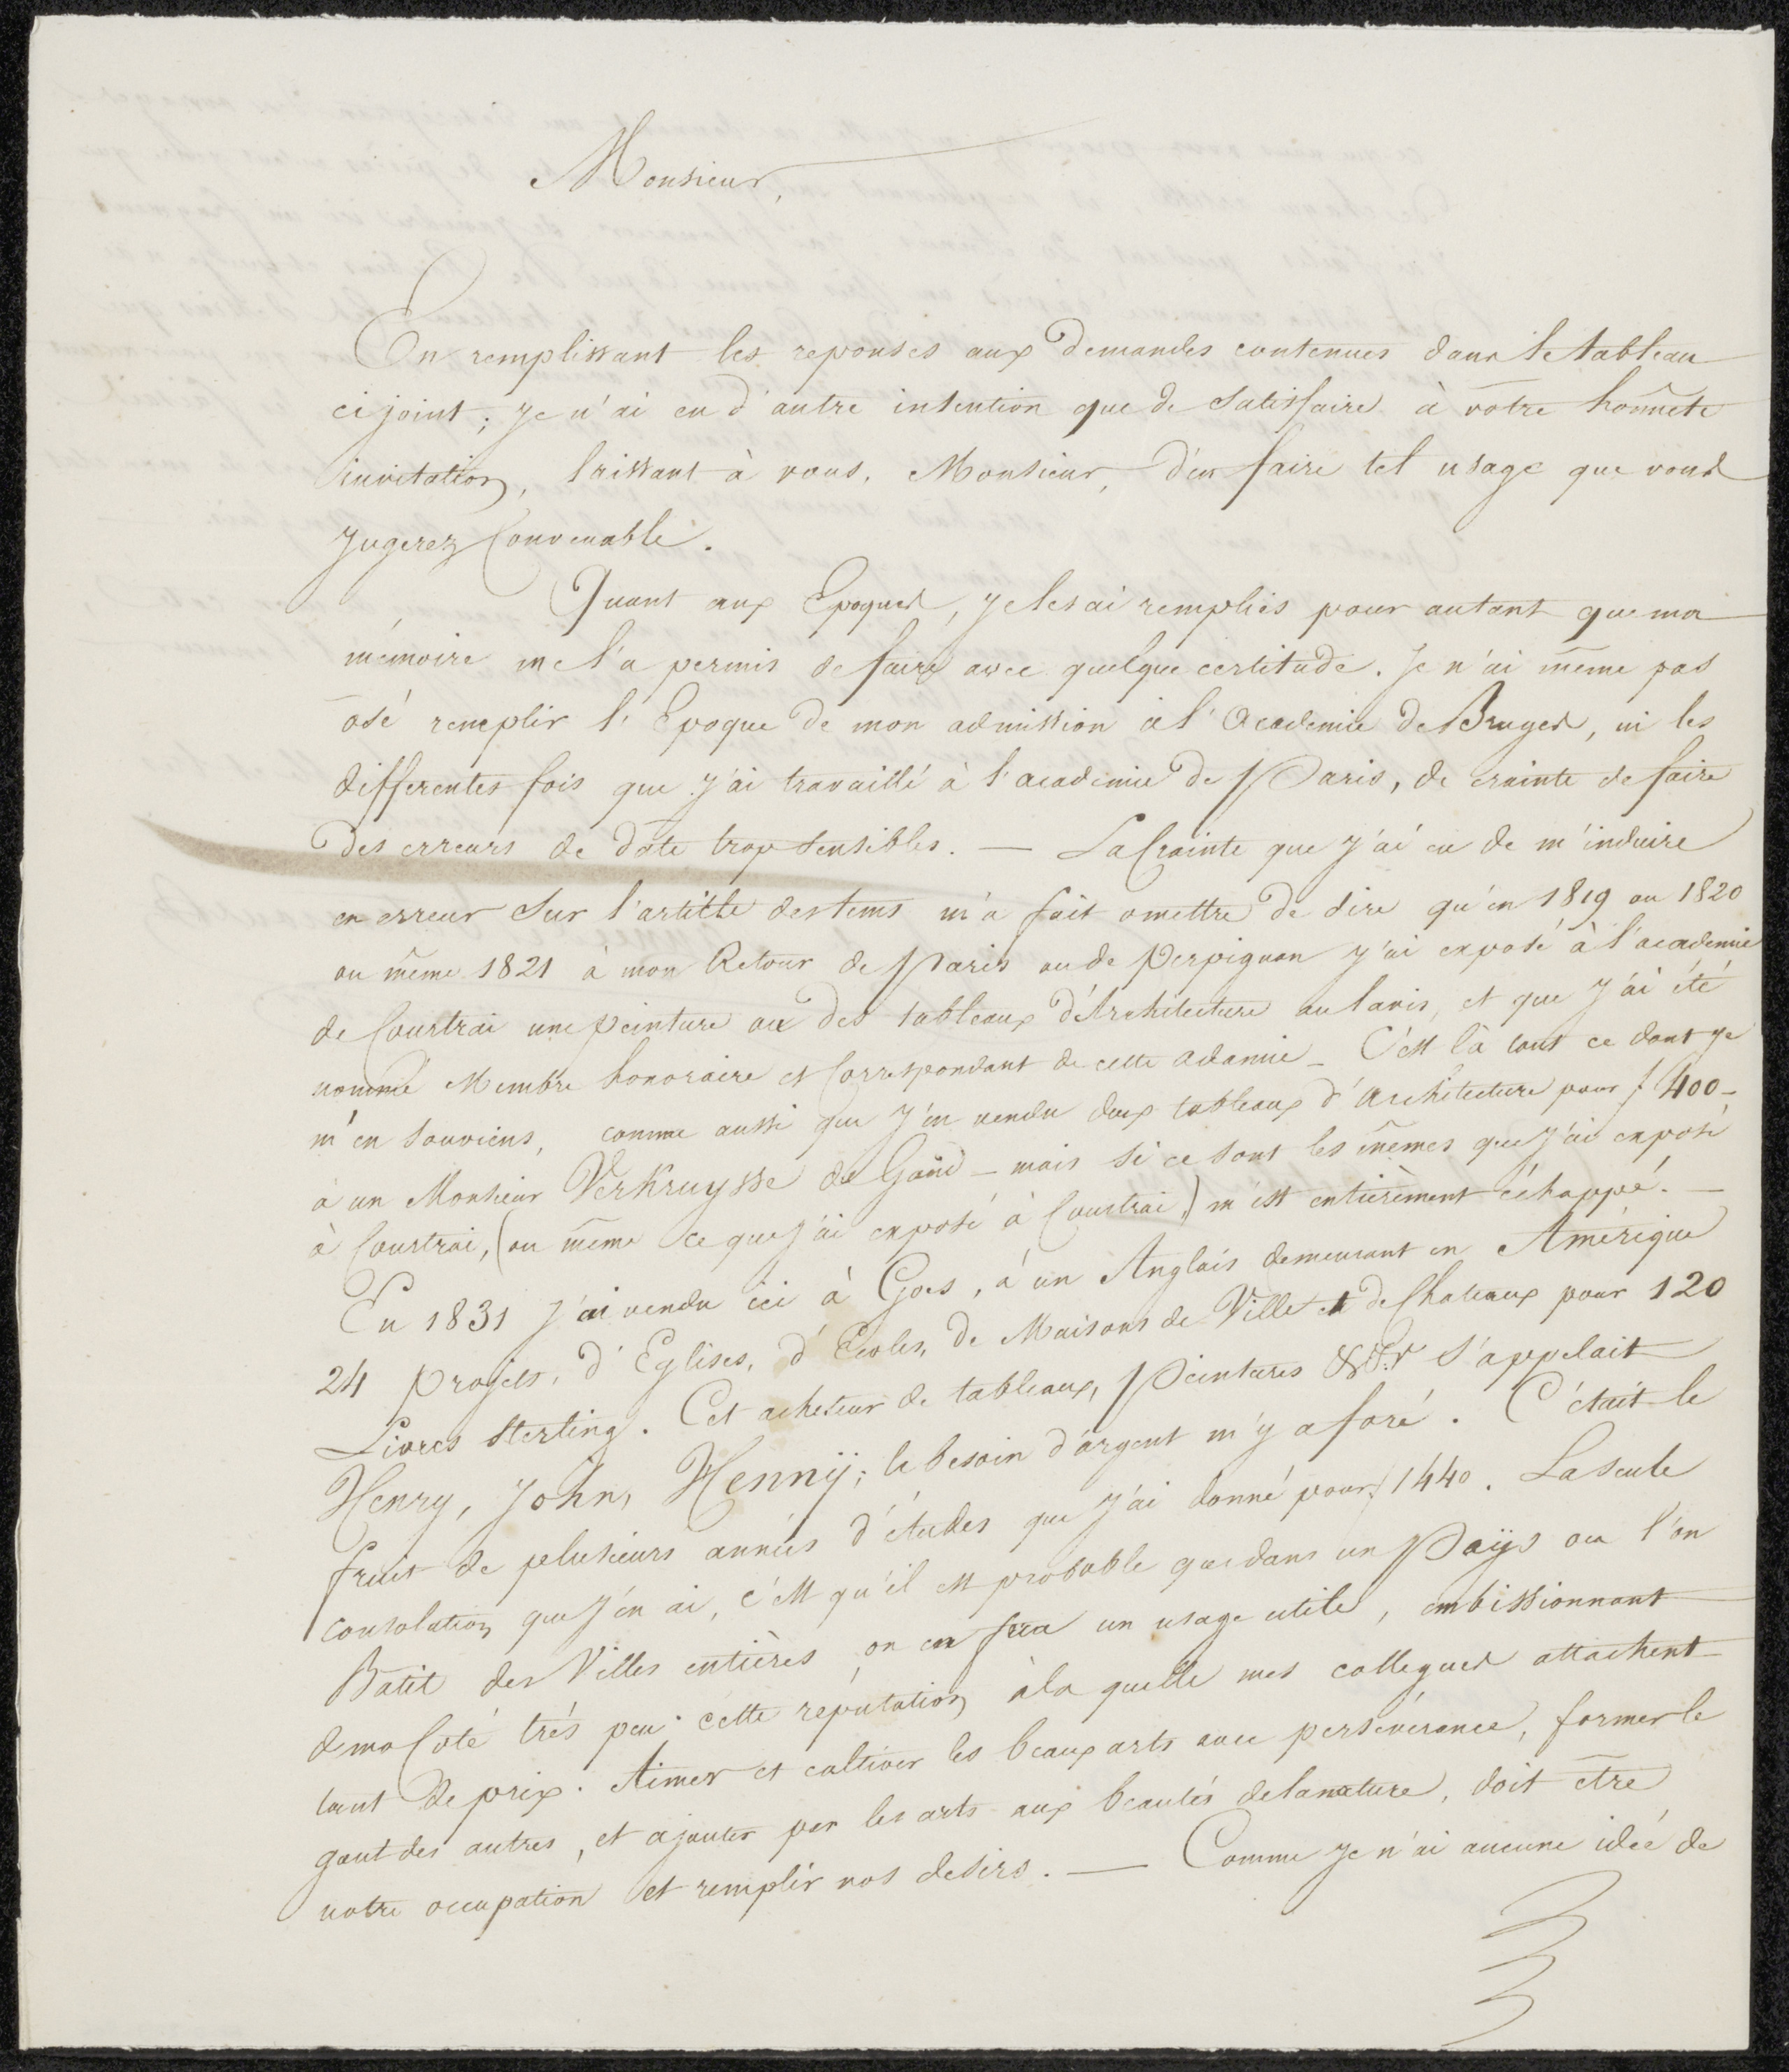 Monsieur,
En remplissant les reponses aux Demandes contenues dans le tableau
ci joint; je n'ai eu d'autre intention que de satisfaire à votre honnete
invitation, laissant à vous, Monsieur, d'en faire tel usage que vous
jugerez Convenable.
Quant aux Epoques, je les ai remplies pour autant que ma
mémoire me l'a permis de faire avec quelque certitude. Je n'ai même pas
osé remplir l'Epoque de mon admission à l'Academie de Bruges, ni les
differentes fois que j'ai travaillé à l'academie de Paris, de crainte de faire
des erreurs de date trop sensibles. — La Crainte que j'ai eu de m'induire
en erreur sur l'article des tems m'a fait omettre de dire qu'en 1819 ou 1820
ou même 1821 à mon Retour de Paris ou de Perpignan j'ai exposé à l'academie
de Courtrai une peinture ou des tableaux d'Architecture au lavis, et que j'ai été
nommé Membre honoraire et Correspondant de cette adamie — C'est là tout ce dont je
m'en souviens, comme aussi que j'en vendu deux tableaux d'Architecture pour f 400-
à un Monsieur VerKruysse de Gand — mais si ce sont les mêmes que j'ai exposé
à Courtrai, (ou même ce que j'ai exposé à Courtrai,) m'est entièrement échappé. —
En 1831 j'ai vendu ici à Goes, à un Anglais demeurant en Amérique
24 projets, d'Eglises, d'Ecoles, de Maisons de Ville et de Chateaux pour 120
Livres Sterling. Cet acheteur de tableaux, Peintures s'appelait
Henry, John, Hennij; le besoin d'argent m'y a foré. C'était le
fruit de plusieurs années d'études que j'ai donné pour f 1440. La seule
consolation que j'en ai, c'est qu'il est probable que dans un Païjs ou l'on
Batit des Villes entières, on en fera un usage utile, ambissionnant
de mo Coté trés peu cette réputation à la quelle mes collegues attachent
tant de prix. Aimer et cultiver les beaux arts avec persévérance, former le
gout des autres, et ajouter par les arts aux beautés de la nature, doit etre
notre occupation et remplir nos desirs. — Comme je n'ai aucune idée de